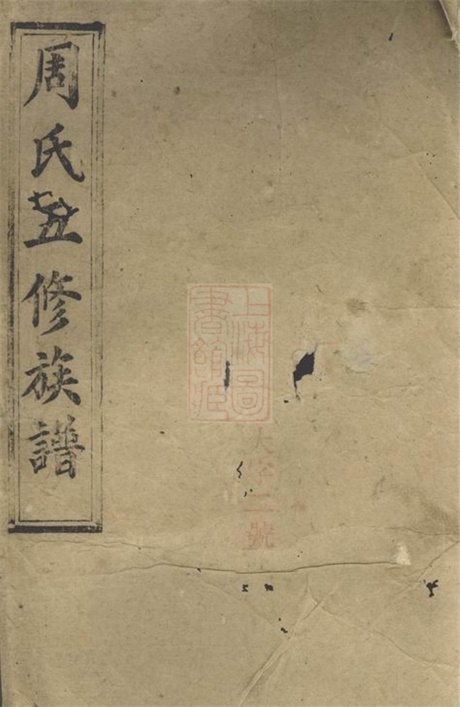 周氏五修族譜
上海圖
書館藏
天字二號